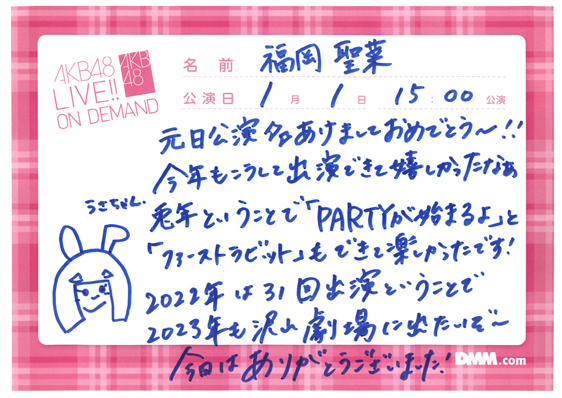 AKB48
LIVE!!
ON DEMAND
AKB
48
名前 福岡 聖菜
公演日 1月 1日 15:00 公演
元日公演 あけましておめでとう〜!!
今年もこうして出演できて嬉しかったなぁ
うさちゃん。
兎年ということで「PARTYが始まるよ」と
「ファーストラビット」もできて楽しかったです!
2022年は31回出演ということで
2023年も沢山劇場に出たいぞ〜
今日はありがとうございました!
DMM.com